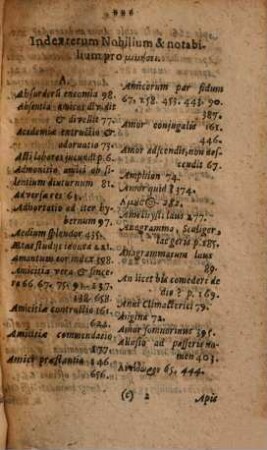 Index rerum Nobilium & notabi-
lium pro
A.
Absorderii encomia 98.
Absentia amicos dividit
& divellit 77.
Academia extrullio &
adornatio 75.
Acti labores jucundi p. 6.
Admonitio amici ob si-
lentium diuturnum 81.
Adversaria 63.
Adhortatio ad iter hy-
bernum 97.
Aedium splendor 435.
Aetas studijs idonea 221.
Amantum cor index 598.
Amicitia vera & since-
ra 66. 67. 75. 91.
138. 658.
Amicitiae contrallio 161.
656.
Amicitiae commendatio
137.
Amici praestantia 146.
Amicorum per fidum
67. 258. 443. 90.
387.
Amor conjugalis 165.
446.
Amor adscendit, non des-
cendit 67.
Amphion 74.
Amor quid? 374.
282.
Amethysti laus 277.
Anagramma, Scaliger
Anagrammatum laus
89.
An licet bis comedere de
die? p. 169.
Anni Climacterici 79.
Angina 72.
Animi somniorum 395.
ad posteris no-
men 403.
65. 444.
(c) 2 Apis